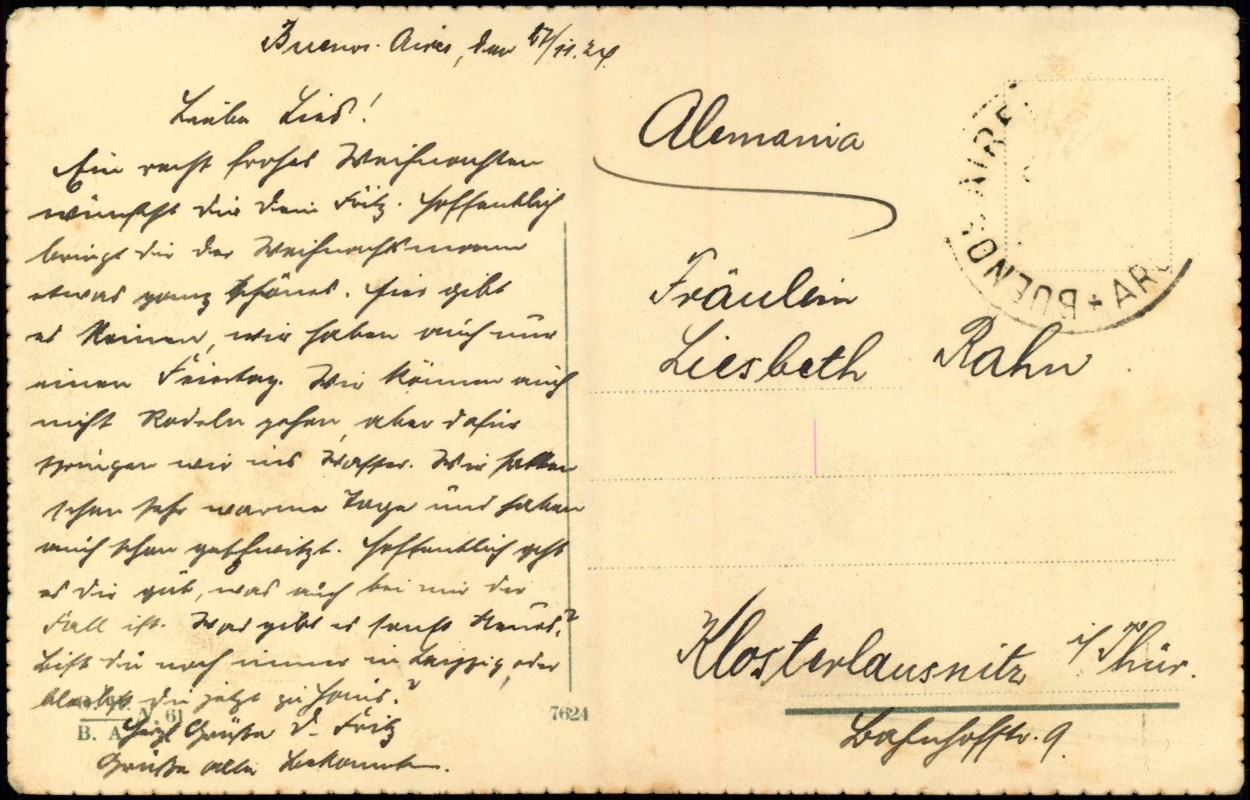 Buenos-Aires, den 27/11.24.
Liebe Lies!
Ein recht frohes Weihnachten
wünscht dir dein Fritz. Hoffentlich
bringt dir der Weihnachtsmann
etwas ganz schönes. Hier gibt
es keinen, wir haben auch nur
einen Feiertag. Wir können auch
nicht Rodeln gehen, aber dafür
springen wir ins Wasser. Wir hatten
schon sehr warme Tage und haben
auch schon geschwitzt. Hoffentlich geht
es dir gut, was auch bei mir der
Fall ist. Was gibt es sonst Neues?
Bist du noch immer in Leipzig, oder
bleibst du jetzt zu Haus?
Herzl Grüße d. Fritz
Grüße alle Bekannten.
61
B. A
7624
Alemania
BUENOS AIRES * ARG
Fräulein
Liesbeth Rahn
Klosterlausnitz i/Thür.
Bahnhofstr. 9.